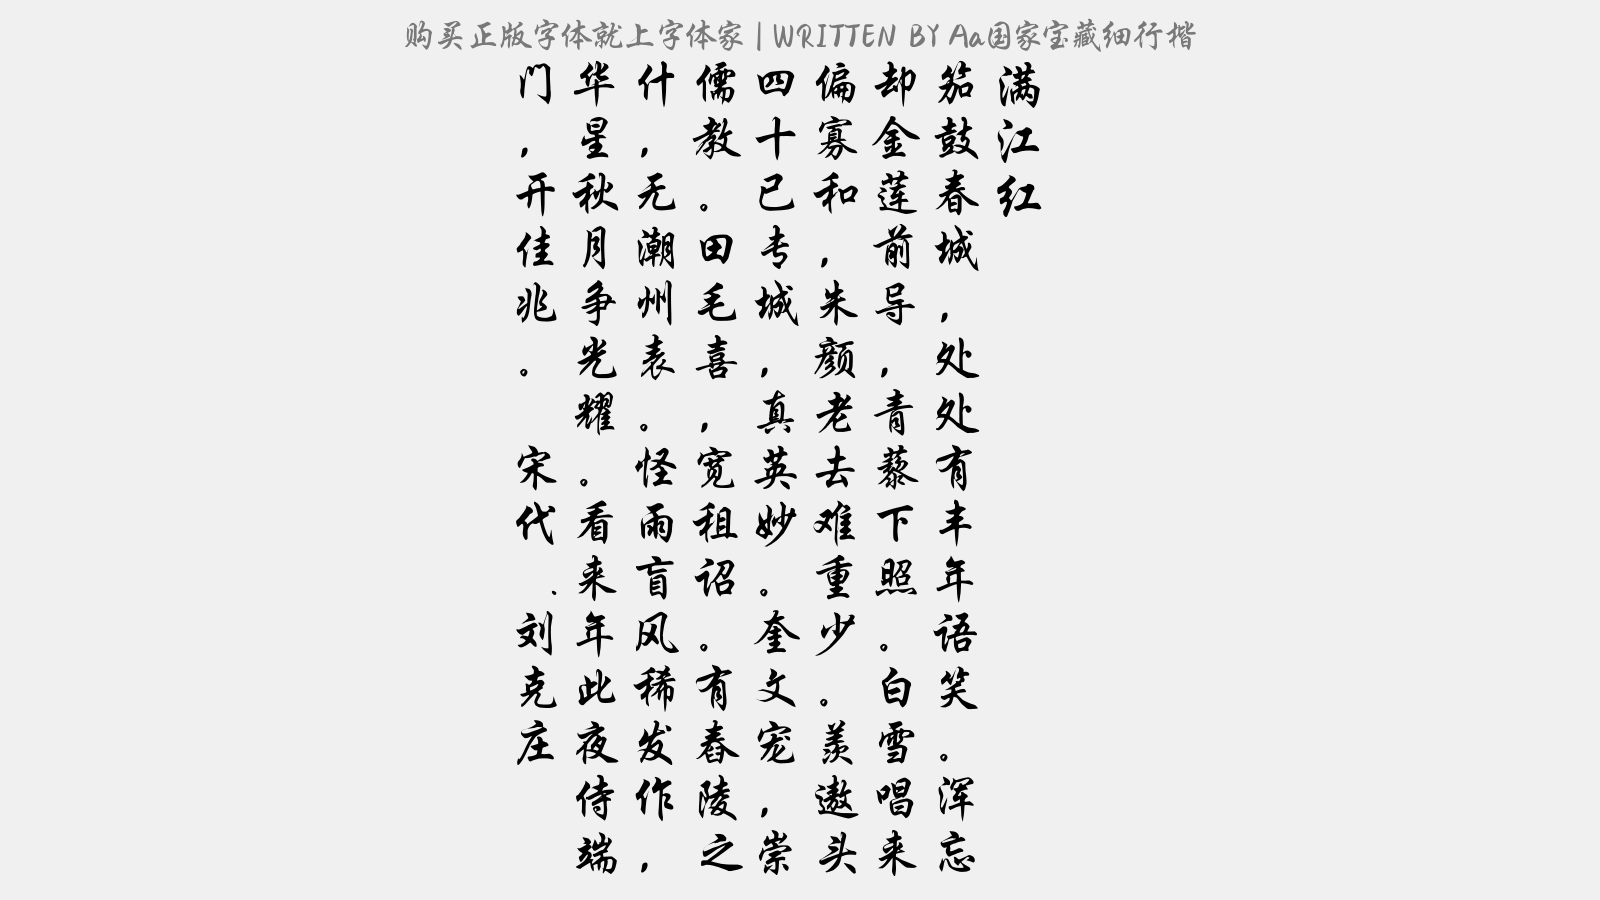 购买正版字体就上字体家 | WRITTEN BY Aa国家宝藏细行楷
满江红
笳鼓春城，处处有丰年语笑。浑忘
却金莲前导，青藜下照。白雪唱来
偏寡和，朱颜老去难重少。羡遨头
四十已专城，真英妙。奎文宠，崇
儒教。田毛喜，宽租诏。有舂陵之
什，无潮州表。怪雨盲风稀发作，
华星秋月争光耀。看来年此夜侍端
门，开佳兆。 宋代.刘克庄